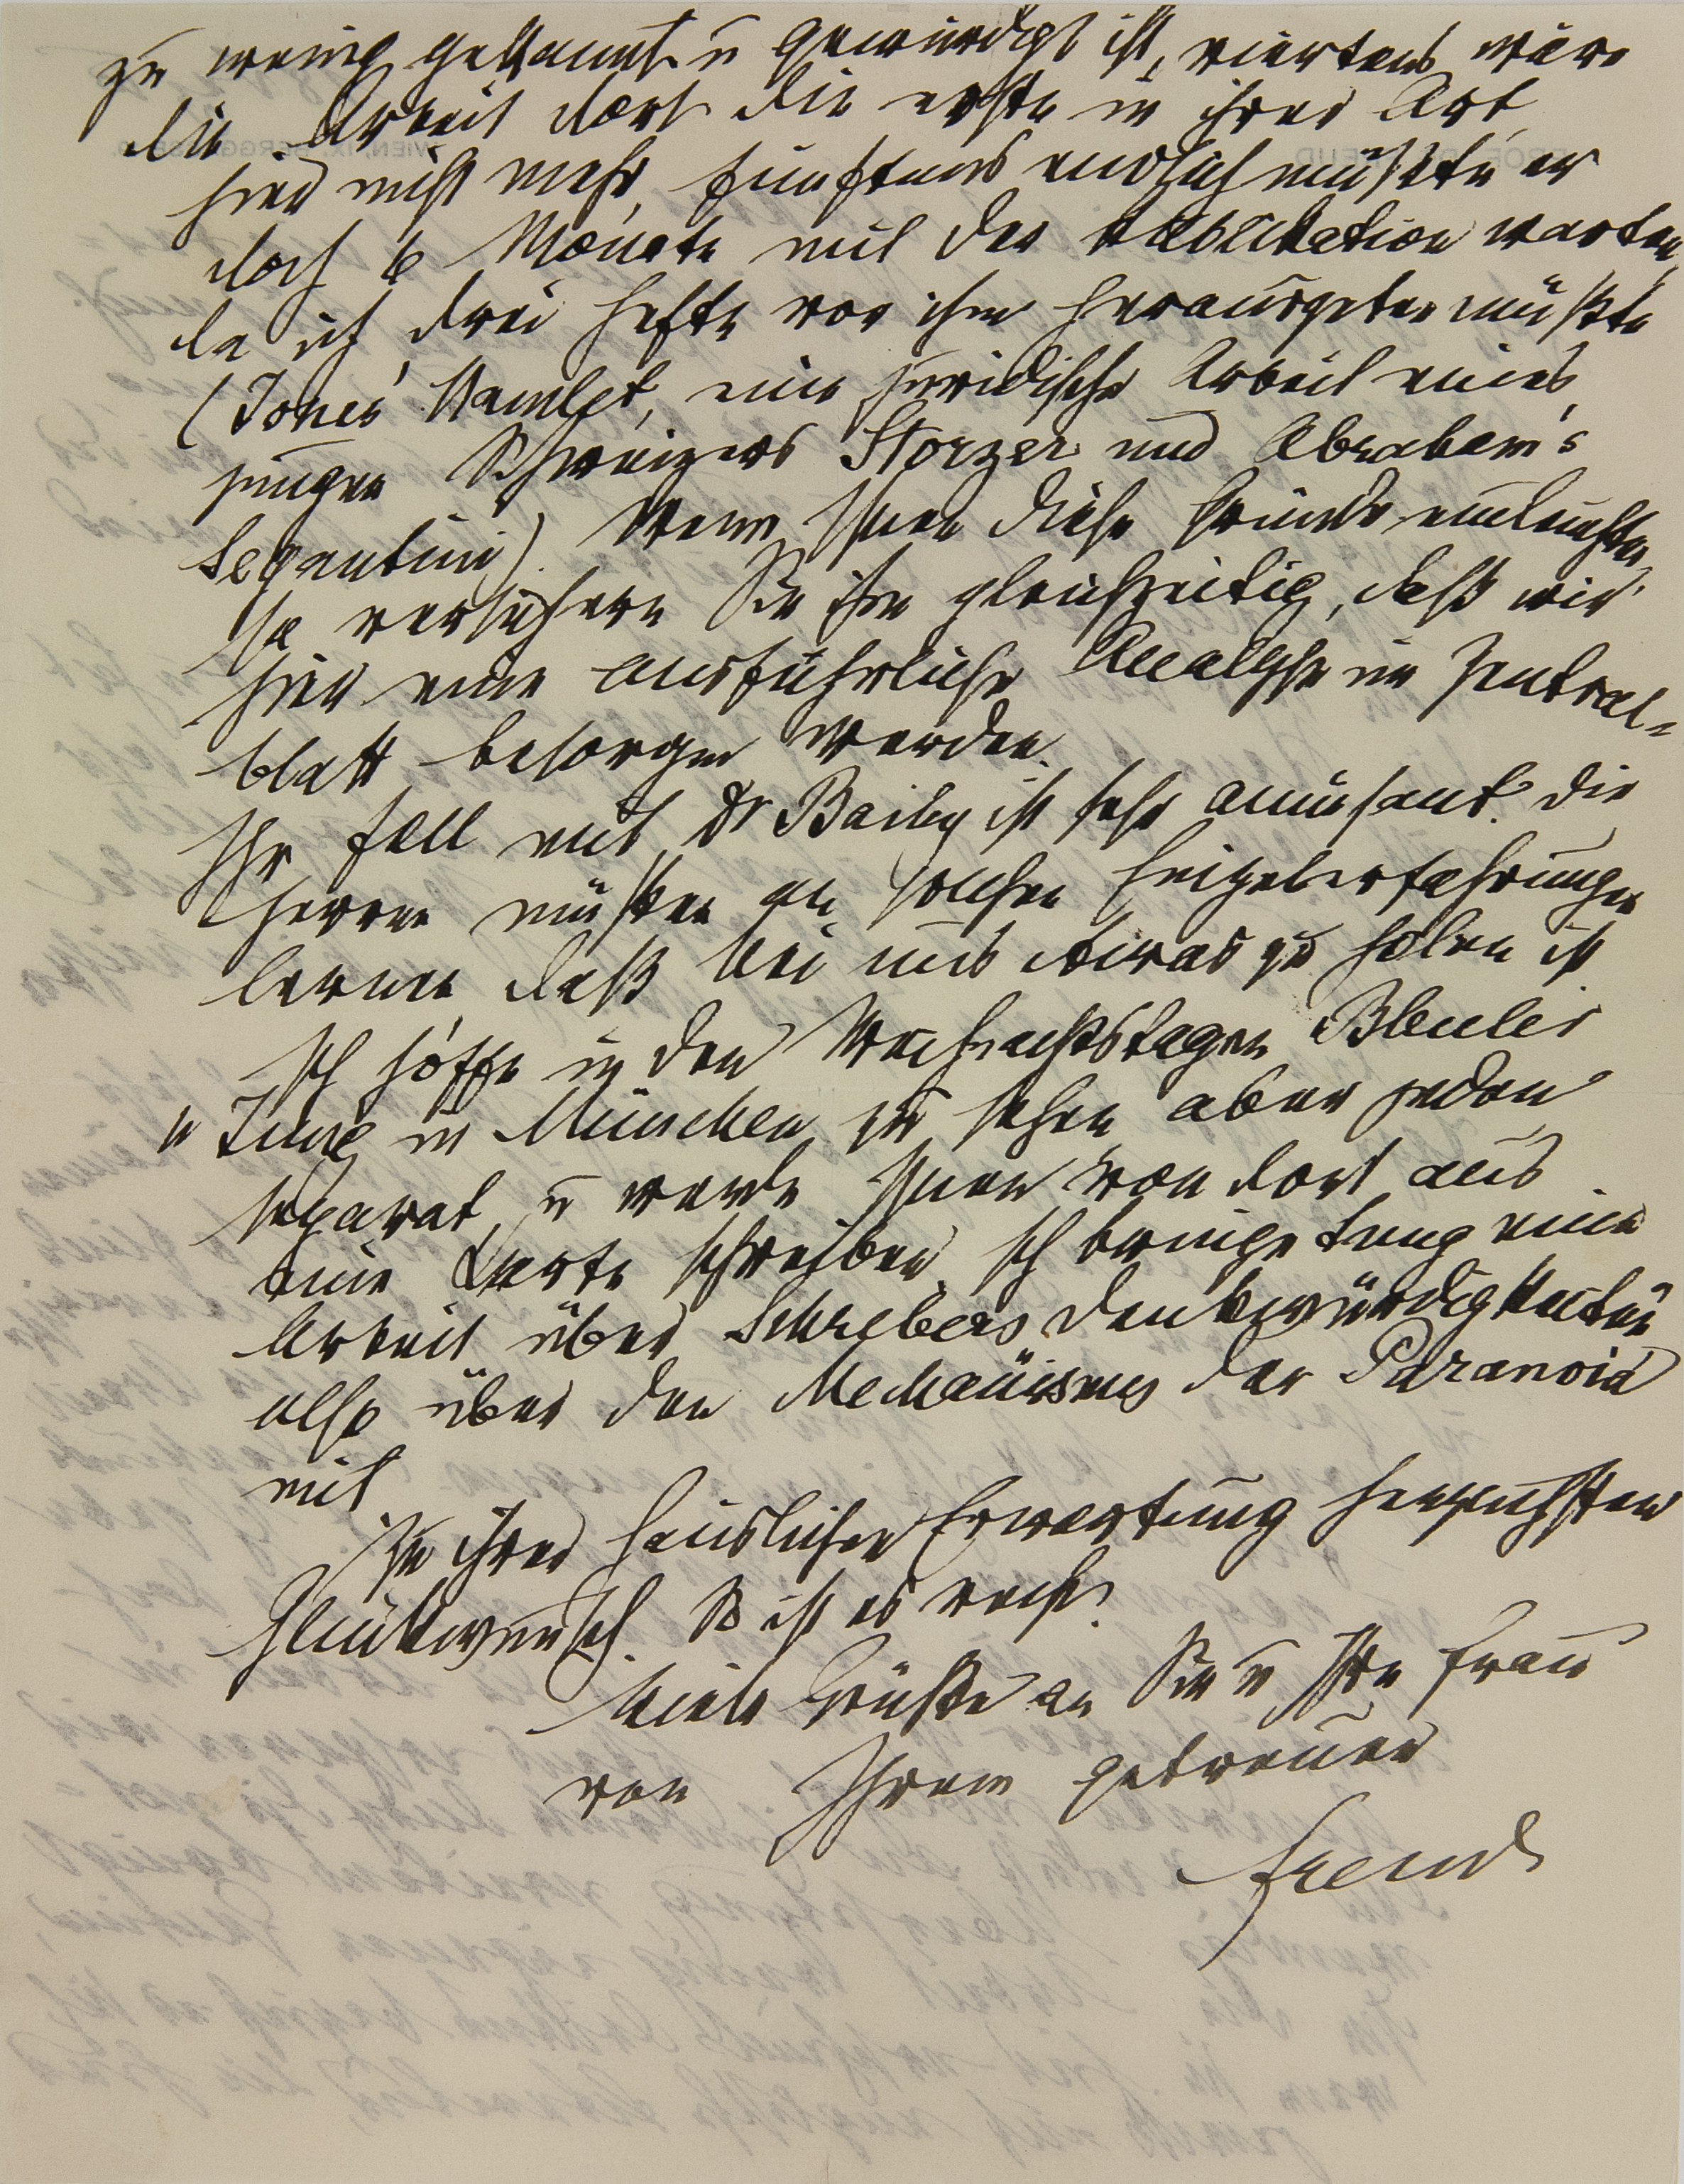 zu wenig gekannt u gewürdigt ist, viertens wäre
die Arbeit dort die erste in ihrer Art,
hier nicht mehr, fünftens endlich müßte er
doch 6 Monate mit der Publikation warten,
da ich drei Hefte vor ihm herausgeben müßte
(Jones' Hamlet, eine juridische Arbeit eines
jungen Schweizers Storzer und Abraham's
Segantini). Wenn Ihnen diese Gründe einleuchten
so versichern Sie ihn gleichzeitig, daß wir
hier eine ausführliche Analyse im Zentral-
blatt besorgen werden.
Ihr Fall mit Dr Baily ist sehr amüsant. Die
Herren müßen an solchen Heizelerfahrungen
lernen, daß bei uns etwas zu holen ist
Ich hoffe in den Weihnachtstagen Bleuler
u Jung in München zu sehen aber jeden
separat, u werde Ihnen von dort aus
eine Karte schreiben. Ich bringe Jung eine
Arbeit über Schrebers Denkwürdigkeiten
also über den Mechanismus der Paranoia
mit
Zu ihrer häuslichen Erwartung herzlichsten
Glückwunsch. So ist es recht.
Viele Grüße an Sie u Ihre Frau
von Ihrem getreuen
Freud